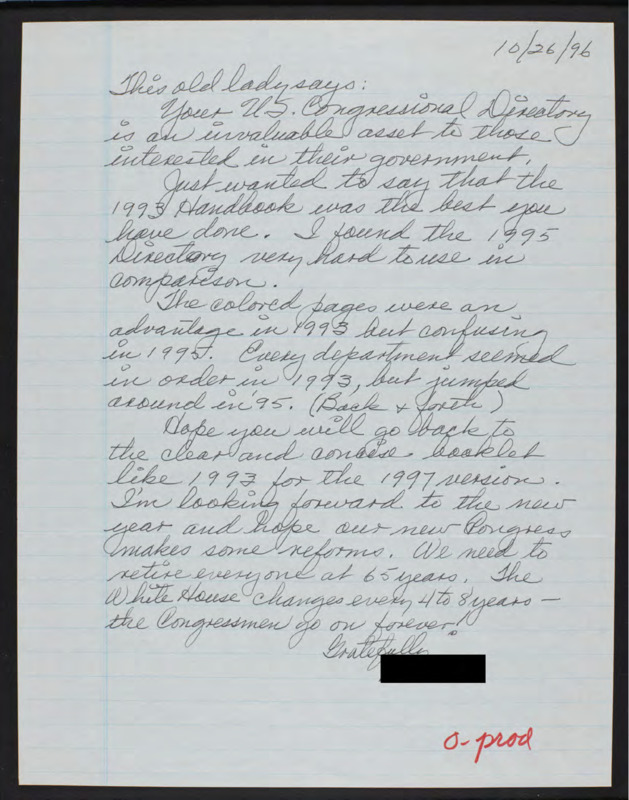 10/26/96
This old lady says:
Your U.S. Congressional Directory
is an invaluable asset to those
interested in their government.
Just wanted to say that the
1993 Handbook was the best you
have done. I found the 1995
Directory very hard to use in
comparison.
The colored pages were an
advantage in 1993 but confusing
in 1995. Every department seemed
in order in 1993, but jumped
around in '95. (Back & forth)
Hope you will go back to
the clear and concise booklet
like 1993 for the 1997 version.
I'm looking forward to the new
year and hope our new Congress
makes some reforms. We need to
retire everyone at 65 years. The
White House changes every 4 to 8 years —
the Congressmen go on forever!
Gratefully
O-prod